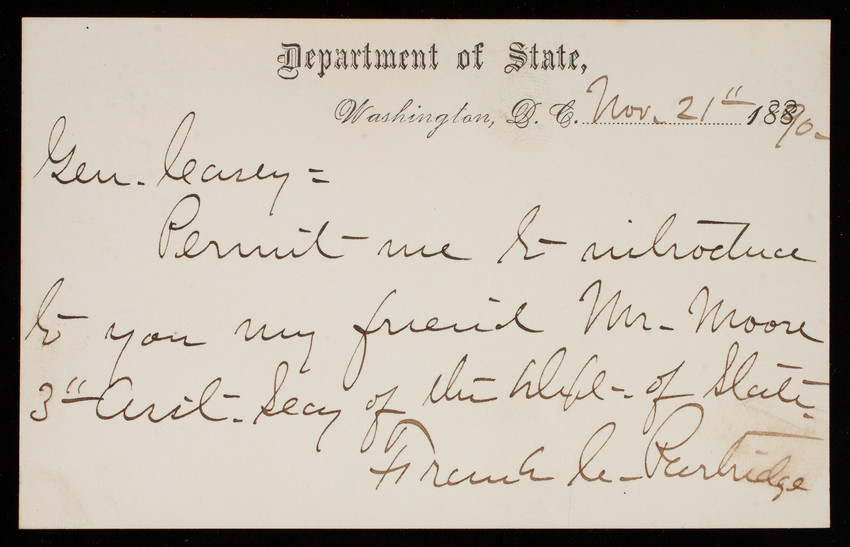 Department of State,
Washington, D. C. Nov. 21" 1890.
Gen. Casey =
Permit me to introduce
to you my friend Mr. Moore
3" Asst. Secy of the Dept. of State.
Frank C. Partridge